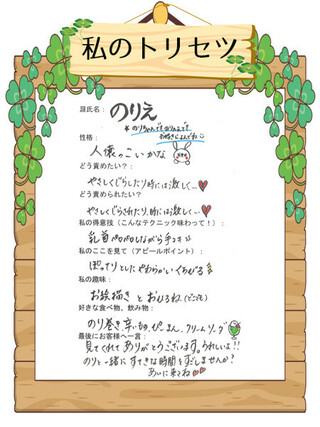 私のトリセツ
源氏名: のりえ
＊のりちゃんでものりえでも
お好きによんでね
性格:
人懐っこいかな
どう責めたい?:
やさしくじらしたり時には激しく…♥
どう責められたい?:
やさしくじらされたり、時には激しく…♥
私の得意技（こんなテクニック味わって!）:
乳首ペロペロしながら手コキ
私のここを見て（アピールポイント）:
ぽってりとしたやわらかいくちびる
私の趣味:
お絵描きと おひるね(どこでも)
好きな食べ物、飲み物:
のり巻き 辛いもの、ぴーまん、クリームソーダ
最後にお客様へ一言:
見てくれてありがとうございます。うれしいよ!!
のりと一緒に すてきな時間をすごしませんか?
あいに来てね♥♥